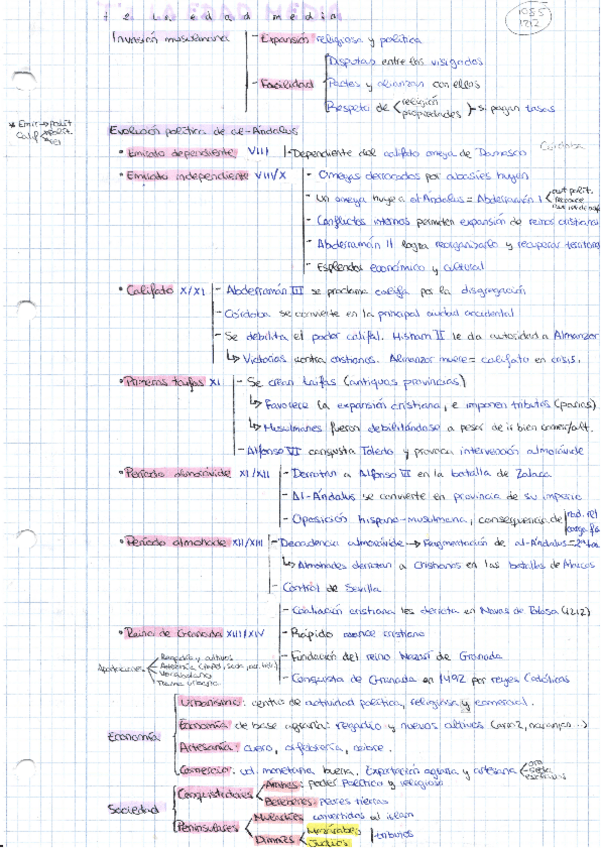 t e I n e d a d m e d i a
1085
1212
Invasión musulmana
- Expansión religiosa y política
- Facilidad
Disputas entre los visigodos
Pactos y alianzas con ellos
Respeto de < religión
propiedades > si pagan tasas
* Emir → polít
Calif < polít.
rel
Evolución política de al-Ándalus
• Emirato dependiente VIII - Dependiente del califato omeya de Damasco
Córdoba
• Emirato independiente VIII/X - Omeyas derrocados por abasíes huyen
- Un omeya huye a al Ándalus = Abderramán I
- Conflictos internos permiten expansión de reinos cristianos
- Abderramán II logra reorganizarlo y recuperar territorios
- Esplendor económico y cultural
• Califato X/XI - Abderramán III se proclama califa por la disgregación
- Córdoba se convierte en la principal ciudad occidental
- Se debilita el poder califal. Hisham II le da autoridad a Almanzor
↳ Victorias contra cristianos. Almanzor muere = califato en crisis.
• Primeras taifas XI - Se crean taifas (antiguas provincias)
↳ Favorece la expansión cristiana, e imponen tributos (parias)
↳ Musulmanes fueron debilitándose a pesar de ir bien
- Alfonso VI conquista Toledo y provoca intervención almorávide
• Período almorávide XI/XII - Derrotan a Alfonso VI en la batalla de Zalaca
- Al-Ándalus se convierte en provincia de su imperio
- Oposición hispano-musulmana, consecuencia de
• Período almohade XII/XIII - Decadencia almorávide → Fragmentación de al-Ándalus =
↳ Almohades derrotan a cristianos en las batallas de Alarcos
- Control de Sevilla
- Coalición cristiana les derrota en Navas de Tolosa (1212)
• Reino de Granada XIII/XIV - Rápido avance cristiano
- Fundación del reino Nazarí de Granada
- Conquista de Granada en 1492 por reyes Católicos
Aportaciones
Regadío y cultivos
Vocabulario
Economía
Urbanismo: centro de actividad política, religiosa y comercial.
Economía de base agraria: regadío y nuevos cultivos (arroz, naranjas...)
Artesanía: cuero, orfebrería, cobre.
Comercio: ud. monetaria buena. Exportación agraria y artesana < oro
esclavos
Sociedad
Conquistadores < Árabes: poder político y religioso
Bereberes: peores tierras
Peninsulares < Muladíes convertidos al islam
Dimmíes < Mozárabes
Judíos
tributos